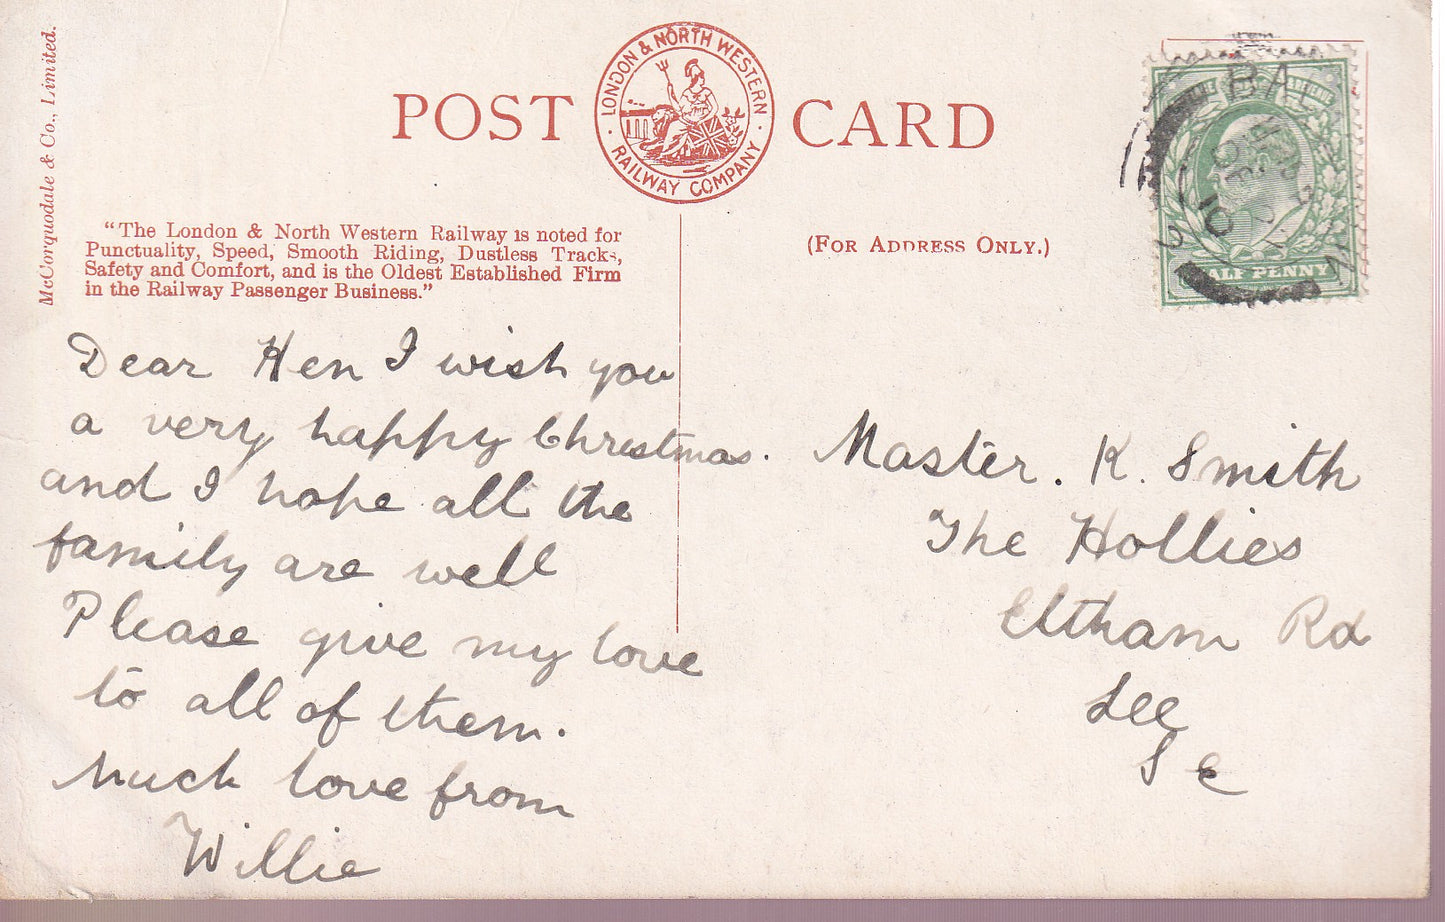 McCorquodale & Co., Limited.
POST CARD
LONDON & NORTH WESTERN
RAILWAY COMPANY
"The London & North Western Railway is noted for
Punctuality, Speed, Smooth Riding, Dustless Tracks,
Safety and Comfort, and is the Oldest Established Firm
in the Railway Passenger Business."
(FOR ADDRESS ONLY.)
HALF PENNY
Dear Ken I wish you
a very happy Christmas.
and I hope all the
family are well
Please give my love
to all of them.
Much love from
Willie
Master. K. Smith
The Hollies
Eltham Rd
Lee
S E